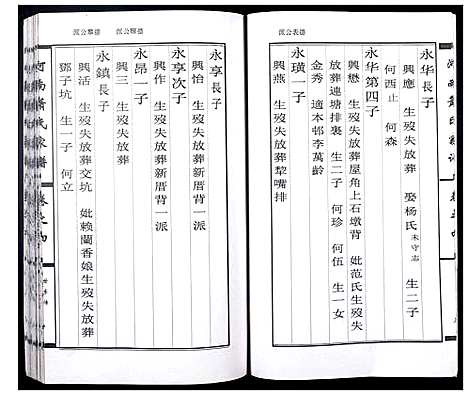 德表公派
永华長子
興應 生歿失放葬 娶杨氏未守志 生二子
何西止 何森
永华第四子
興懋 生歿失放葬屋角上石墩背 妣范氏生歿失
放葬連塘排裏 生二子 何珍 何伍 生一女
金秀 適本邨李萬齡
永璜一子
興燕 生歿失放葬犂嘴排
德聯公派 德聯公派
永享長子
興怡 生歿失放葬新厝背一派
永享次子
興作 生歿失放葬新厝背一派
永昂一子
興三 生歿失放葬
永鎮長子
興活 生歿失放葬交坑 妣賴蘭香娘生歿失放葬
鄧子坑 生一子 何立